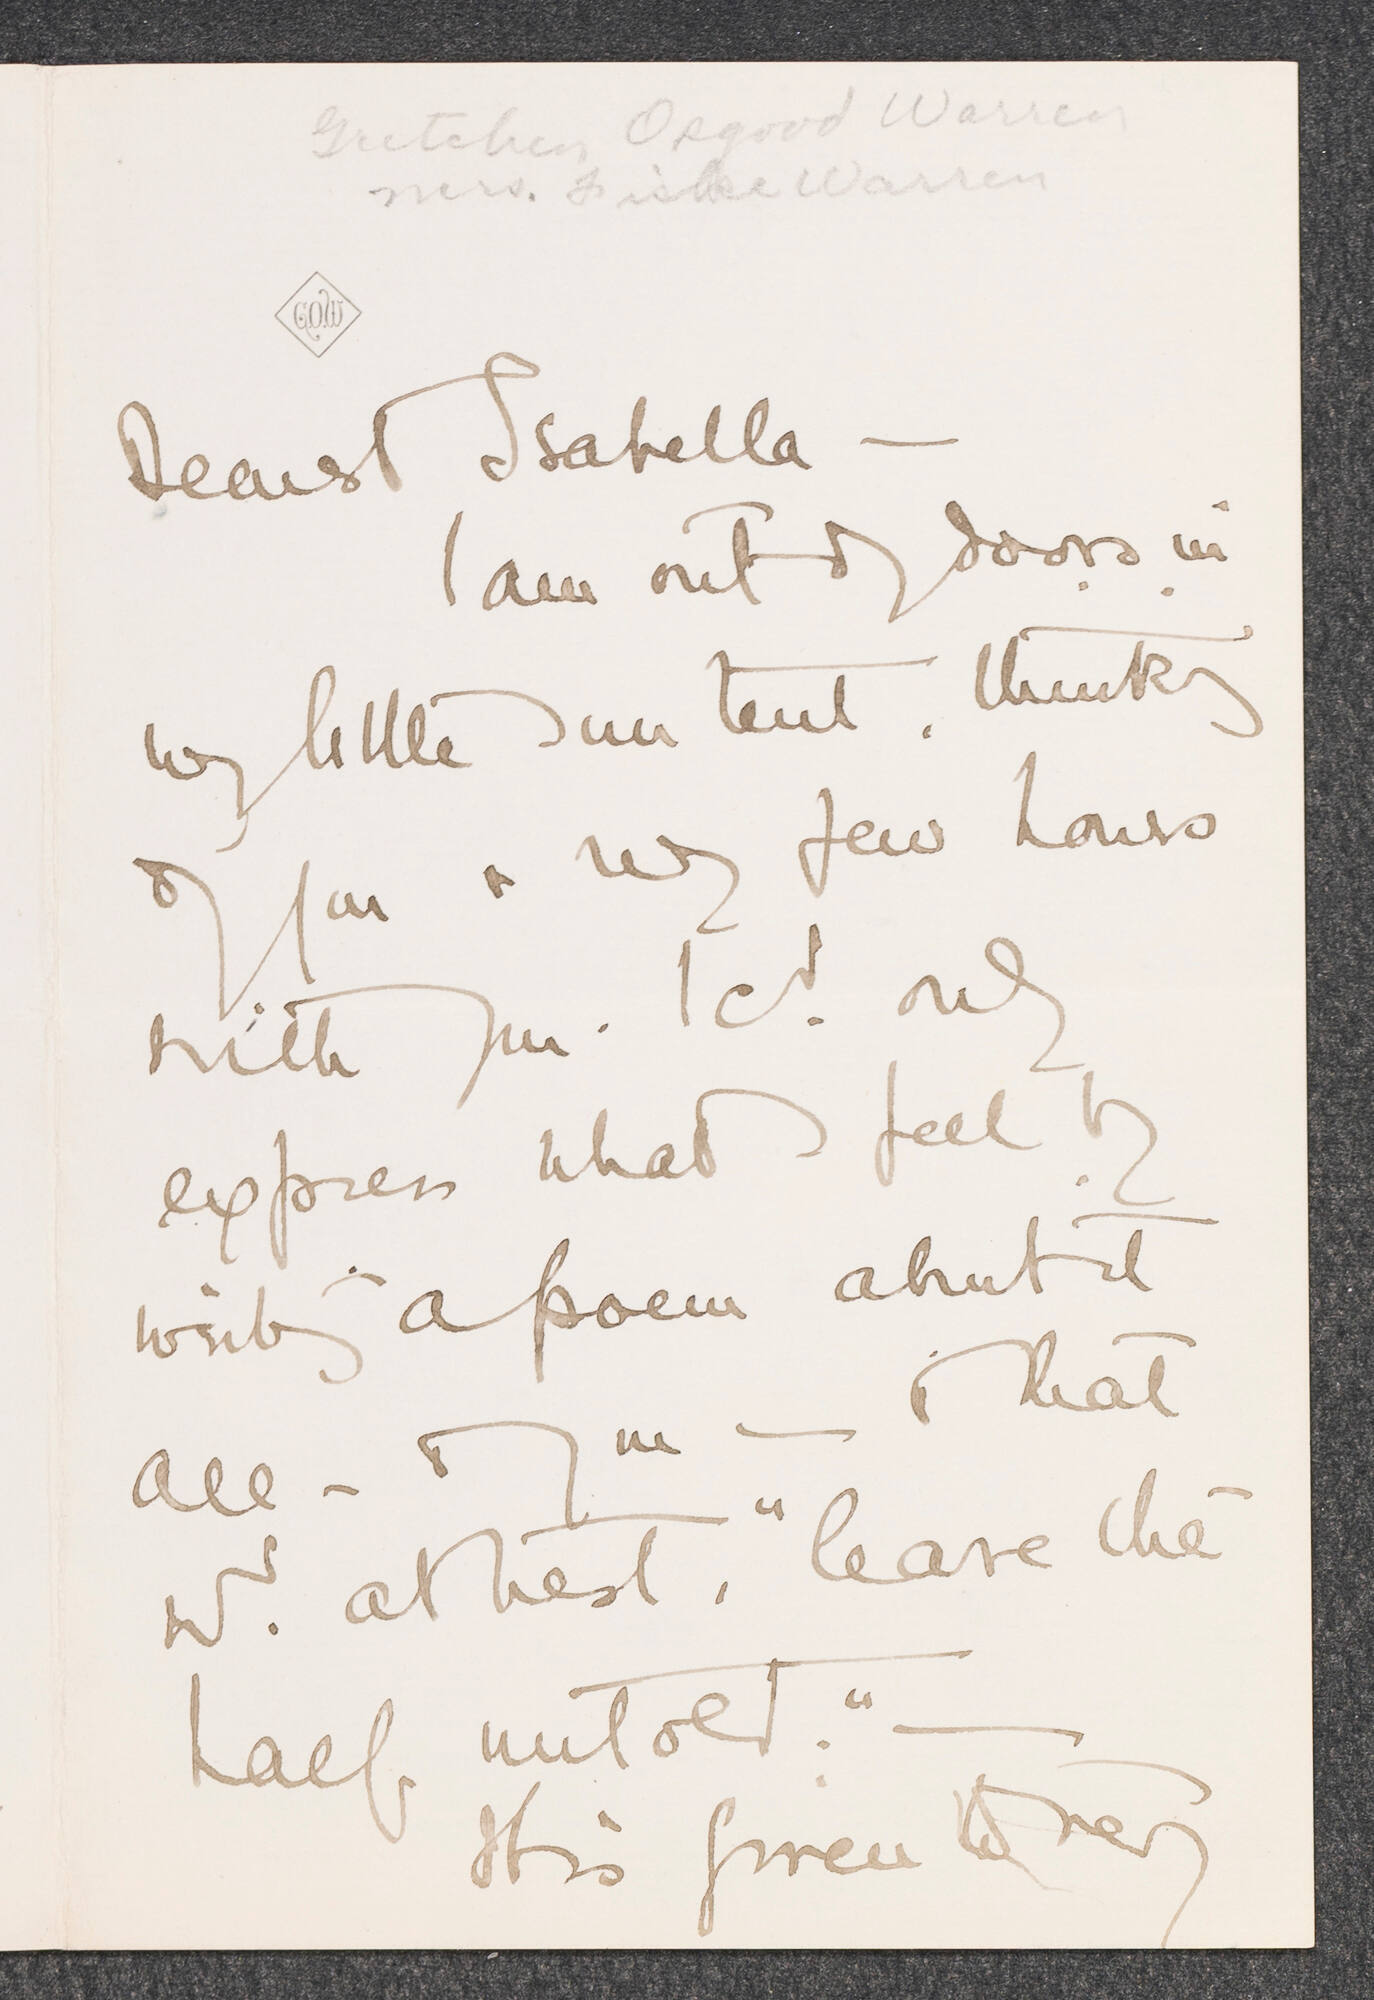 Gretchen Osgood Warren
Mrs. Fiske Warren
G.O.W
Dearest Isabella —
I am out of doors in
my little sun tent, thinking
of you & my few hours
with you. I cd. only
express what I feel by
writing a poem about it
all - & of you — & that
wd. at best, "leave the
half untold." —
It is given to very